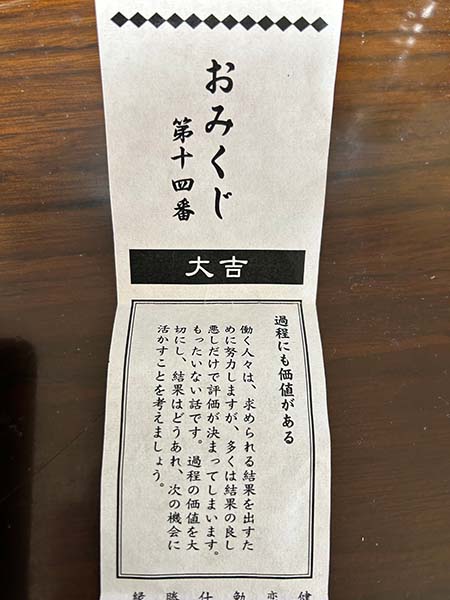 おみくじ
第十四番
大吉
過程にも価値がある
働く人々は、求められる結果を出すた
めに努力しますが、多くは結果の良し
悪しだけで評価が決まってしまいます。
もったいない話です。過程の価値を大
切にし、結果はどうあれ、次の機会に
活かすことを考えましょう。
健
恋
勤
仕
勝
縁